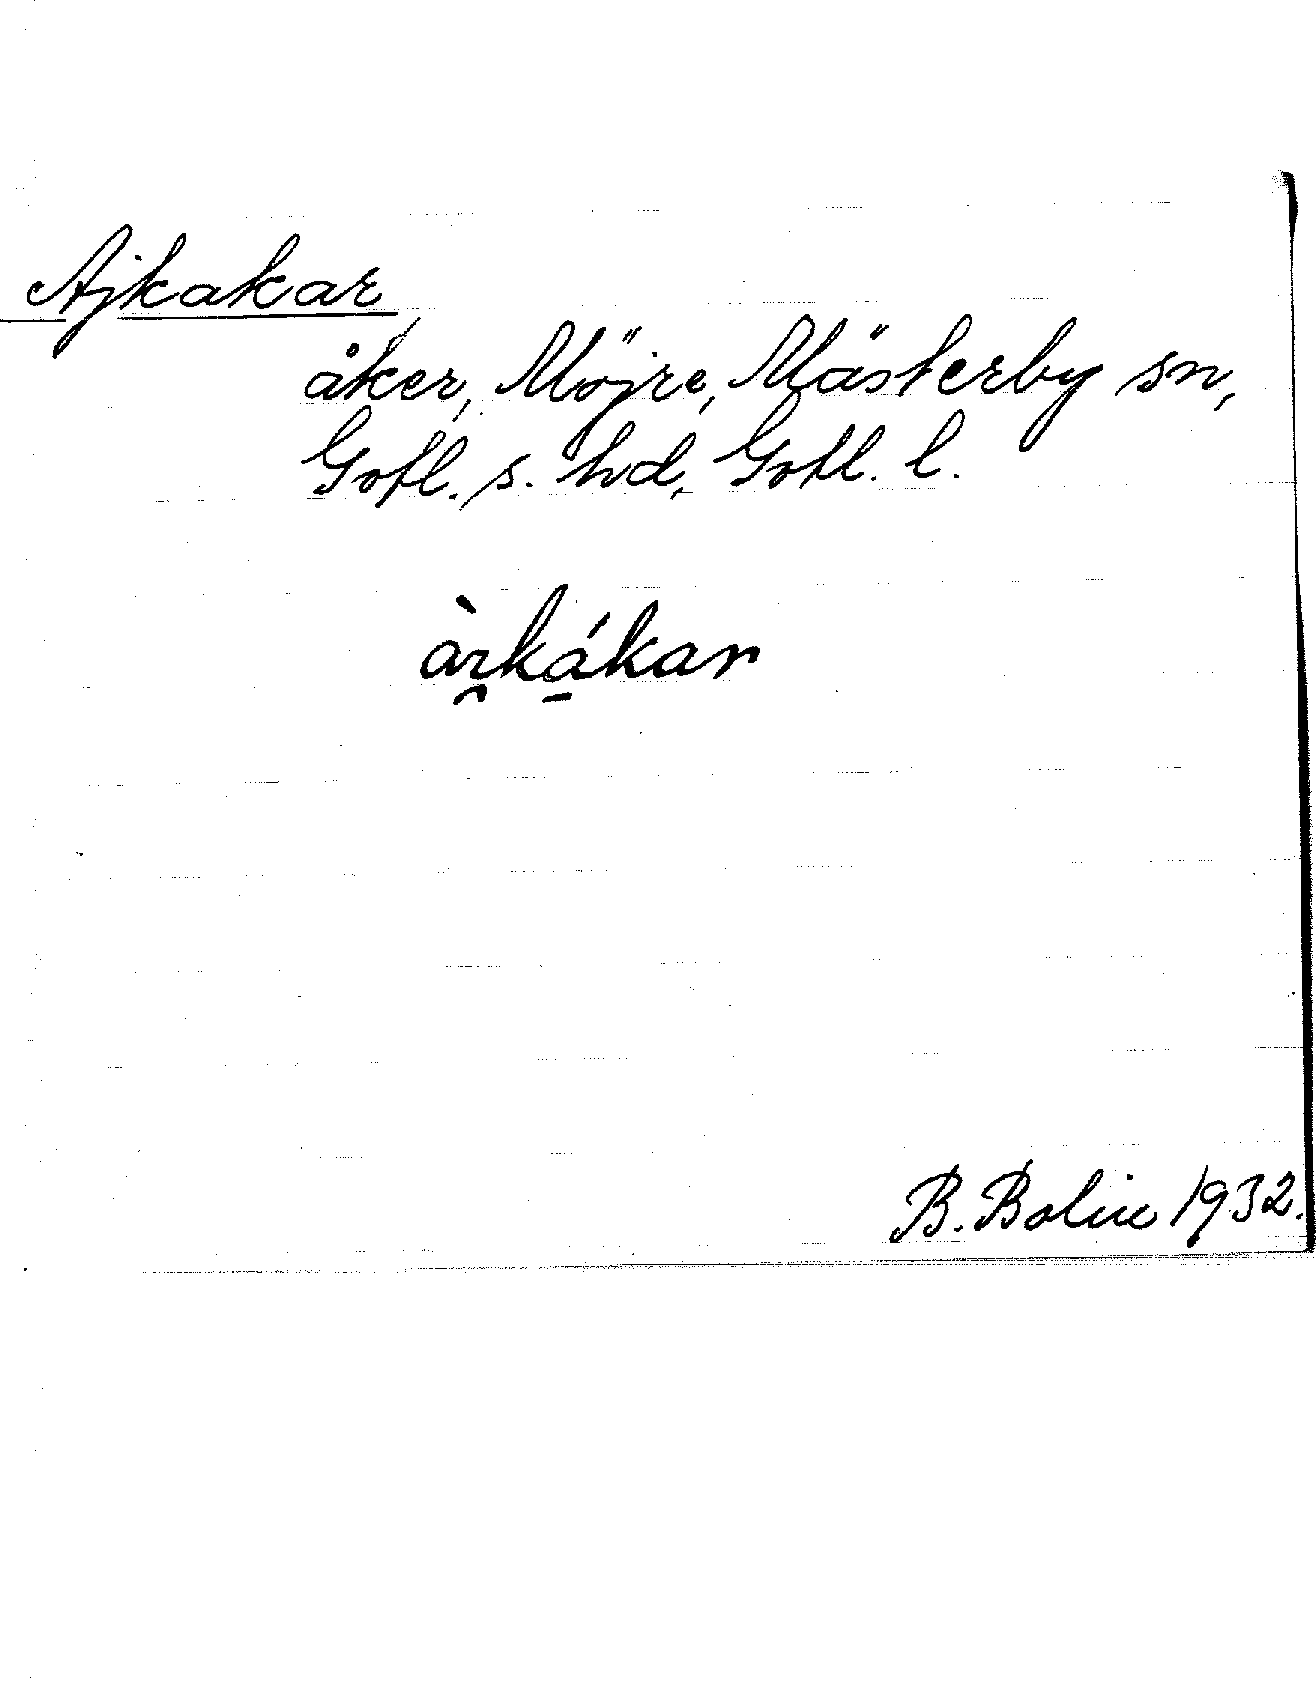 Ajkakar
åker, Möjre, Mästerby sn,
Gotl. s. hd, Gotl. l.
àı̯ká̱kar
B. Bolin 1932.